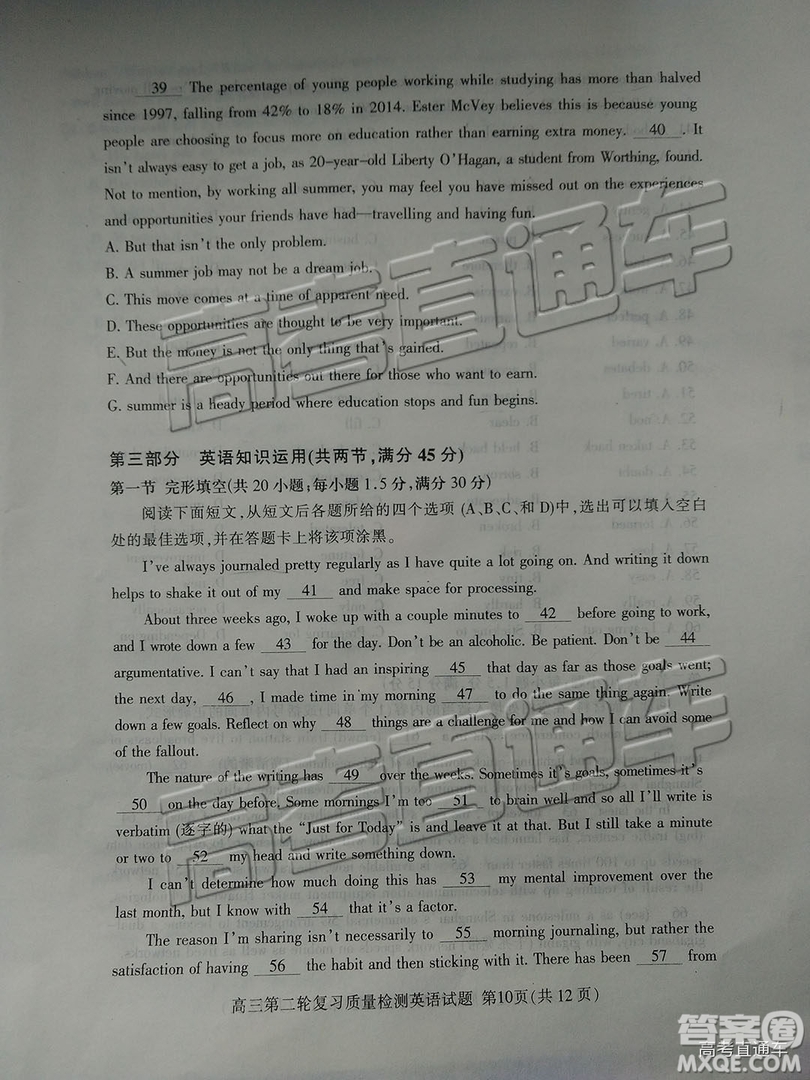 39 The percentage of young people working while studying has more than halved
since 1997, falling from 42% to 18% in 2014. Ester McVey believes this is because young
people are choosing to focus more on education rather than earning extra money. 40 . It
isn't always easy to get a job, as 20-year-old Liberty O'Hagan, a student from Worthing, found.
Not to mention, by working all summer, you may feel you have missed out on the experiences
and opportunities your friends have had—travelling and having fun.
A. But that isn't the only problem.
B. A summer job may not be a dream job.
C. This move comes at a time of apparent need.
D. These opportunities are thought to be very important.
E. But the money is not the only thing that's gained.
F. And there are opportunities out there for those who want to earn.
G. summer is a heady period where education stops and fun begins.
第三部分 英语知识运用(共两节,满分45分)
第一节 完形填空(共20小题;每小题1.5分,满分30分)
阅读下面短文,从短文后各题所给的四个选项 (A、B、C、和 D)中,选出可以填入空白
处的最佳选项,并在答题卡上将该项涂黑。
I've always journaled pretty regularly as I have quite a lot going on. And writing it down
helps to shake it out of my 41 and make space for processing.
About three weeks ago, I woke up with a couple minutes to 42 before going to work,
and I wrote down a few 43 for the day. Don't be an alcoholic. Be patient. Don't be 44
argumentative. I can't say that I had an inspiring 45 that day as far as those goals went;
the next day, 46 , I made time in my morning 47 to do the same thing again. Write
down a few goals. Reflect on why 48 things are a challenge for me and how I can avoid some
of the fallout.
The nature of the writing has 49 over the weeks. Sometimes it's goals, sometimes it's
50 on the day before. Some mornings I'm too 51 to brain well and so all I'll write is
verbatim (逐字的) what the "Just for Today" is and leave it at that. But I still take a minute
or two to 52 my head and write something down.
I can't determine how much doing this has 53 my mental improvement over the
last month, but I know with 54 that it's a factor.
The reason I'm sharing isn't necessarily to 55 morning journaling, but rather the
satisfaction of having 56 the habit and then sticking with it. There has been 57 from
高三第二轮复习质量检测英语试题 第10页(共12页)
高考直通车
高考直通车
答案圈
高考直通车
MXQE.COM